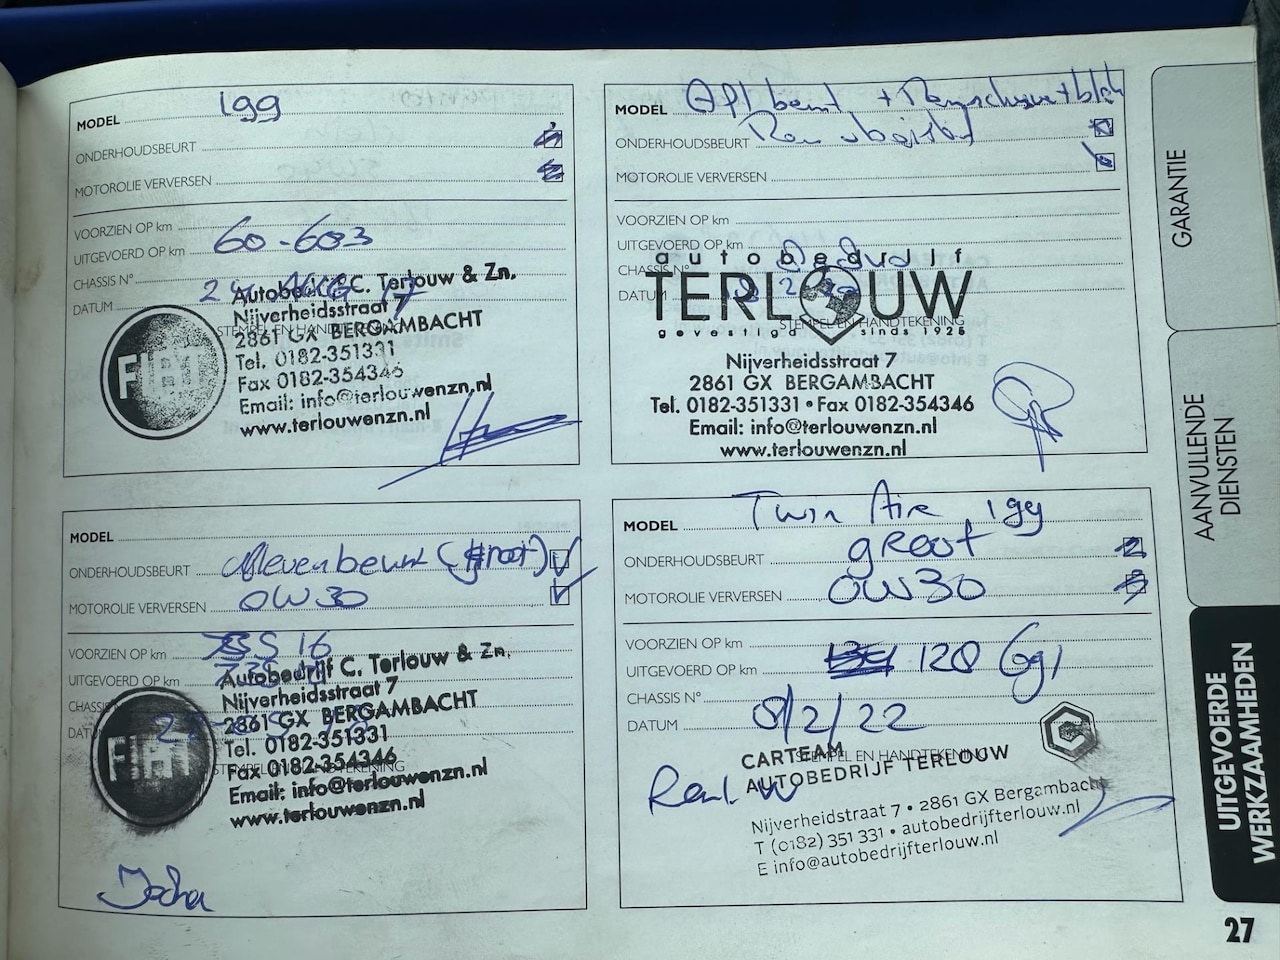 MODEL 199
ONDERHOUDSBEURT
MOTOROLIE VERVERSEN
VOORZIEN OP km
UITGEVOERD OP km 60-603
CHASSIS N°
DATUM
STEMPEL EN HANDTEKENING
FIAT
Autobedrijf C. Terlouw & Zn.
Nijverheidsstraat 7
2861 GX BERGAMBACHT
Tel. 0182-351331
Fax 0182-354346
Email: info@terlouwenzn.nl
www.terlouwenzn.nl
MODEL
ONDERHOUDSBEURT
MOTOROLIE VERVERSEN
VOORZIEN OP km
UITGEVOERD OP km
CHASSIS N°
DATUM
STEMPEL EN HANDTEKENING
autobedrijf
TERLOUW
gevestigd sinds 1925
Nijverheidsstraat 7
2861 GX BERGAMBACHT
Tel. 0182-351331 • Fax 0182-354346
Email: info@terlouwenzn.nl
www.terlouwenzn.nl
MODEL
ONDERHOUDSBEURT (groot)
MOTOROLIE VERVERSEN 0W30
VOORZIEN OP km
UITGEVOERD OP km
CHASSIS
DATUM
STEMPEL EN HANDTEKENING
FIAT
Autobedrijf C. Terlouw & Zn.
Nijverheidsstraat 7
2861 GX BERGAMBACHT
Tel. 0182-351331
Fax 0182-354346
Email: info@terlouwenzn.nl
www.terlouwenzn.nl
MODEL Twin Aire 199
ONDERHOUDSBEURT groot
MOTOROLIE VERVERSEN 0W30
VOORZIEN OP km
UITGEVOERD OP km 120 691
CHASSIS N°
DATUM 8/2/22
STEMPEL EN HANDTEKENING
CARTEAM
AUTOBEDRIJF TERLOUW
Nijverheidsstraat 7 • 2861 GX Bergambacht
T (0182) 351 331 • autobedrijfterlouw.nl
E info@autobedrijfterlouw.nl
GARANTIE
AANVULLENDE
DIENSTEN
UITGEVOERDE
WERKZAAMHEDEN
27